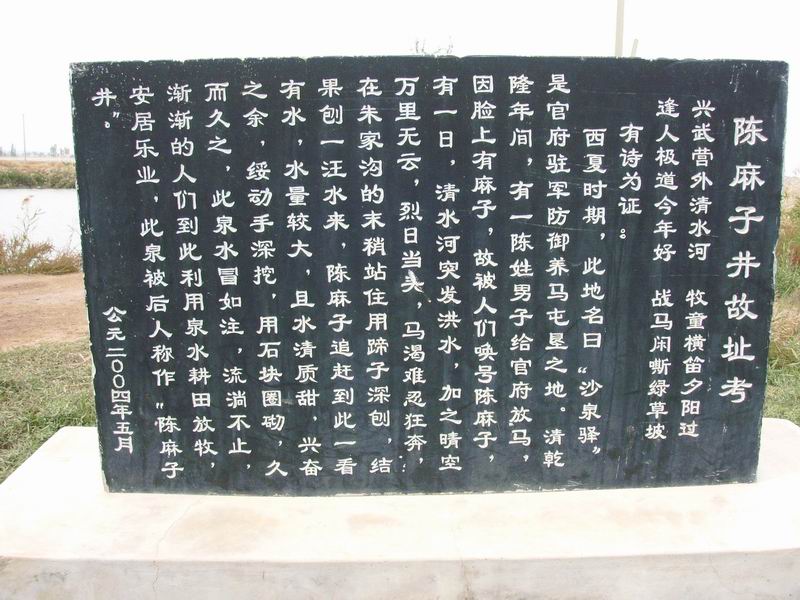 陈麻子井故址考
兴武营外清水河 牧童横笛夕阳过
逢人极道今年好 战马闲嘶绿草坡
有诗为证。
西夏时期，此地名曰“沙泉驿”
是官府驻军防御养马屯垦之地。清乾
隆年间，有一陈姓男子给官府放马，
因脸上有麻子，故被人们唤号陈麻子，
有一日，清水河突发洪水，加之晴空
万里无云，烈日当头，马渴难忍狂奔，
在朱家沟的末稍站住用蹄子深刨，结
果刨一汪水来，陈麻子追赶到此一看
有水，水量较大，且水清质甜，兴奋
之余，绥动手深挖，用石块圈砌，久
而久之，此泉水冒如注，流淌不止，
渐渐的人们到此利用泉水耕田放牧，
安居乐业，此泉被后人称作“陈麻子
井”。
公元二00四年五月